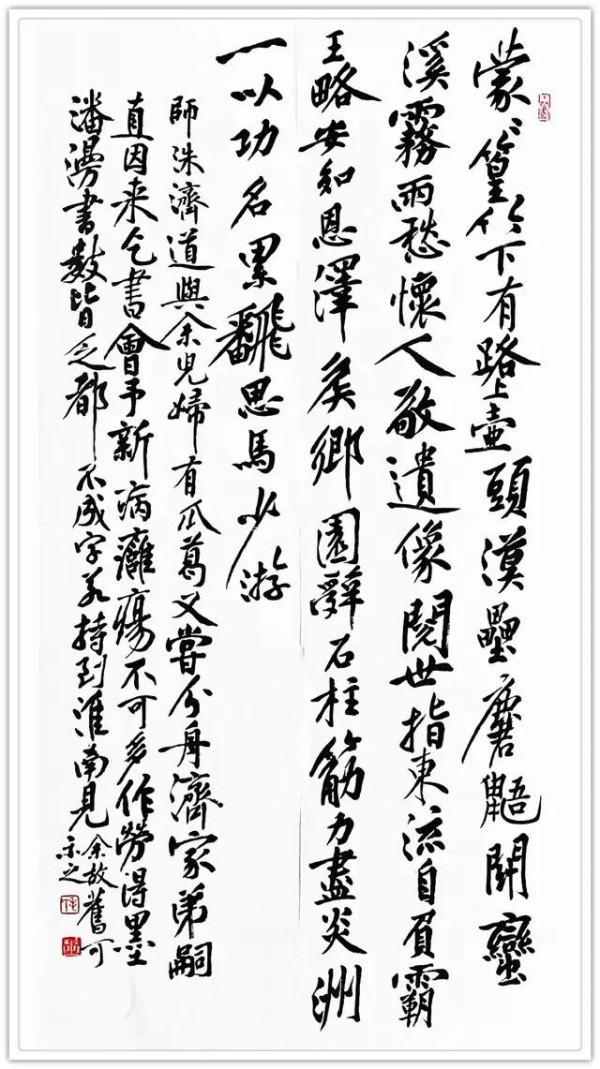 蒙〻篁竹下有路上壺頭漢壘麏鼯鬭蠻
溪霧雨愁懷人敬遺像閱世指東流自負霸
王略安知恩澤侯鄉園辭石柱筋力盡炎洲
一以功名累翻思馬少游
師洙濟道與余兒婦有瓜葛又嘗分舟濟家弟嗣
直因来乞書會予新病癰瘍不可多作勞得墨
瀋漫書數皆乏都不成字若持到淮南見余故舊可
示之